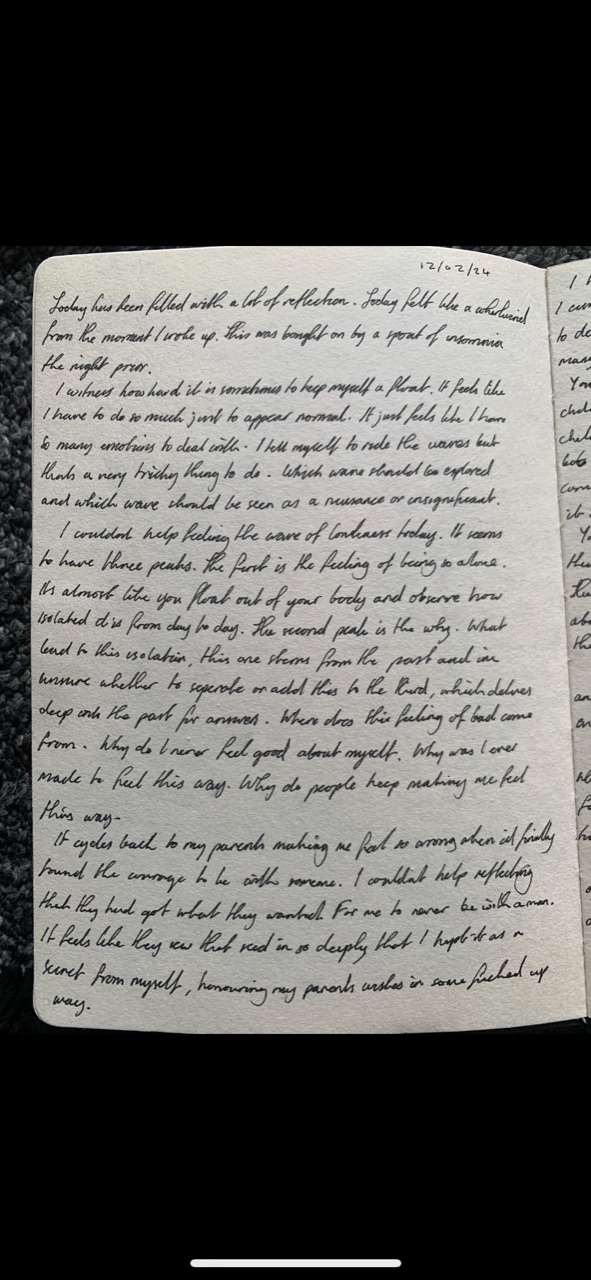 12/02/24
Today has been filled with a lot of reflection. Today felt like a whirlwind
from the moment I woke up. This was bought on by a spout of insomnia
the night prior.
I witness how hard it is sometimes to keep myself a float. It feels like
I have to do so much just to appear normal. It just feels like I have
so many emotions to deal with. I tell myself to ride the waves but
thats a very tricky thing to do. Which wave should be explored
and which wave should be seen as a nuisance or unsignificant.
I couldnt help feeling the wave of lonliness today. It seems
to have three peaks. The first is the feeling of being so alone.
Its almost like you float out of your body and observe how
isolated it is from day to day. The second peak is the why. What
lead to this isolation, this one stems from the past and im
unsure whether to seperate or add this to the third, which delves
deep into the past for answers. Where does this feeling of bad come
from. Why do I never feel good about myself. Why was I ever
made to feel this way. Why do people keep making me feel
this way-
It cycles back to my parents making me feel so wrong when id finally
found the courage to be with someone. I couldnt help reflecting
that they had got what they wanted. For me to never be with a man.
It feels like they sew that seed in so deeply that I kept it as a
secret from myself, honouring my parents wishes in some fucked up
way.
I
I
to de
many
You
com
it